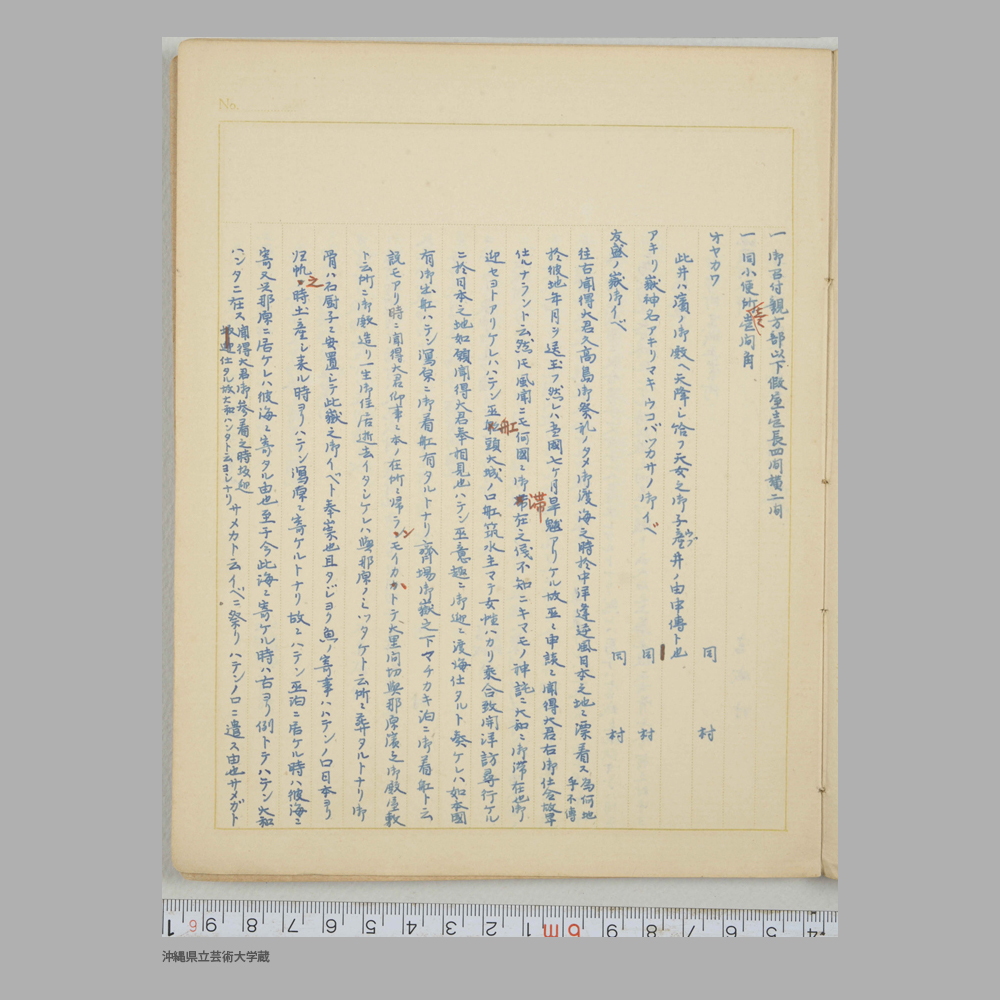 No.
一 御召付親方部以下假屋壱長四間横二間
一 同小便所壱間角
オヤカワ 同 村
此井ハ濱ノ御殿ヘ天降シ給フ天女之御子産井ノ由申傳ト也
ウブ
アキリ嶽神名アキリマキウコバヅカサノ御イベ 同 村
友盛ノ嶽御イベ 同 村
往古聞得大君久高島御祭礼ノタメ御渡海之時於中洋逢逆風日本之地ニ漂着ス為何地
乎不傳
於彼地年月ヲ送玉フ然レハ當國七ケ月旱魃アリケル故巫ニ申談ニ聞得大君右御仕合故旱
仕ルナラント云然圧風聞ニモ何國ニ御滞在之儀不知ニキマモノ神託ニ大和ニ御滞在也御
滞
迎セヨトアリケレハハテン巫地頭大城ノロ舩筑水主マテ女性ハカリ乘合致開洋訪尋行ケル
舩
ニ於日本之地如願聞得大君奉相見也ハテン巫意趣ニ御迎ニ渡海仕タルト奏ケレハ如本國
有御出舩ハテン瀉原ニ御着舩有タルトナリ齋場御嶽之下マチカキ泊ニ御着舩ト云
説モアリ時ニ聞得大君御事ニ本ノ在所ニ帰ランモイカガトテ大里間切與那原濱之御殿屋敷
ト云所ニ御殿造リ一生御住居逝去イタシケレハ與那原ノミツタケト云所ニ葬タルトナリ御
骨ハ石厨子ニ安置シテ此嶽之御イベト奉崇也且タジヨク魚ノ寄事ハハテンノロ日本ヨリ
归帆之時土産シ来ル時ヨリハテン瀉原ニ寄ケルトナリ故ニハテン巫泊ニ居ケル時ハ彼海ニ
之
寄又與那原ニ居ケレハ彼海ニ寄タル由也至于今此海ニ寄ケル時ハ古ヨリ例トテハテン大和
バンタニ在ス 聞得大君御參着之時坂迎
仕タル故大和ハンタト云ヨシナリ サメカトト云イベニ祭リハテンノロニ遣ス由也サメガト
1 6 9 8 7 6 5 4 3 2 1 6m 9 8 7 6 5 4
沖縄県立芸術大学蔵